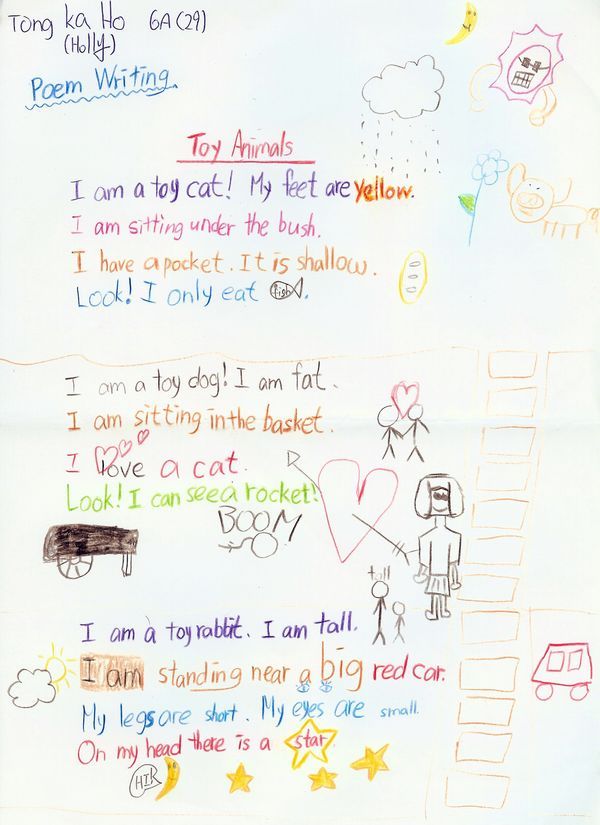 Tong Ka Ho 6A(29)
(Holly)
Poem Writing.
Toy Animals
I am a toy cat! My feet are yellow.
I am sitting under the bush.
I have a pocket. It is shallow.
Look! I only eat fish.
I am a toy dog! I am fat.
I am sitting in the basket.
I love a cat.
Look! I can see a rocket!
BOOM
tall
I am a toy rabbit. I am tall.
I am standing near a big red car.
My legs are short. My eyes are small.
On my head there is a star.